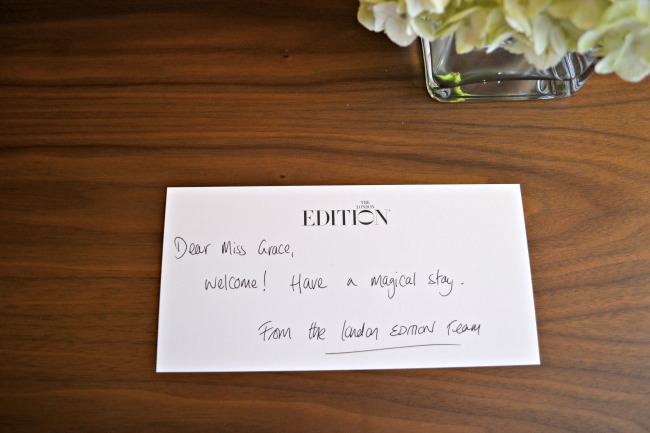 THE
LONDON
EDITION
Dear Miss Grace,
Welcome! Have a magical stay.
From the London EDITION Team